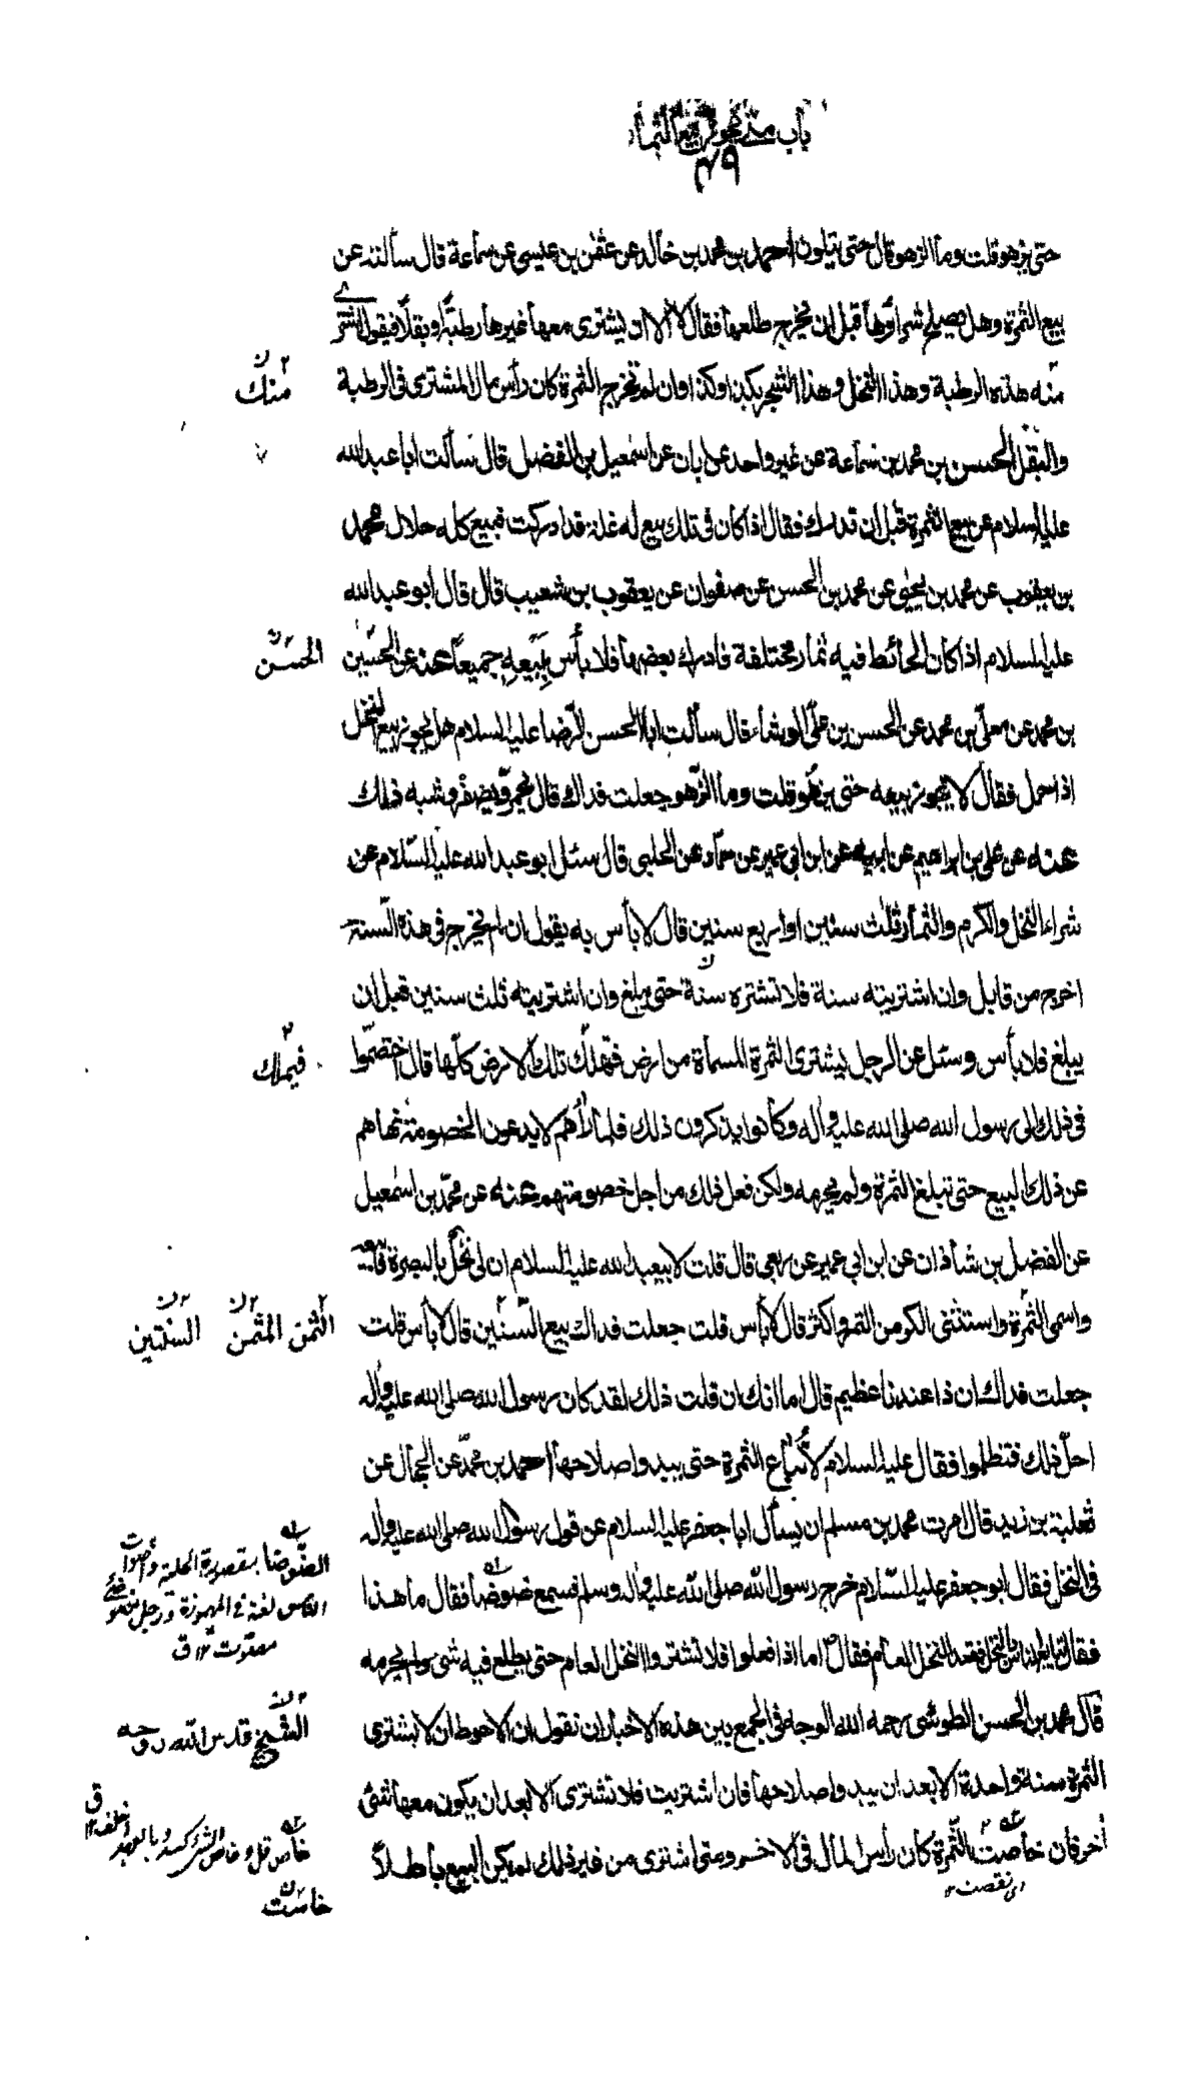 باب متى يجوز بيع الثمار
٤٩
حتى يزهو قلت وما الزهو قال حتى يتلون احمد بن محمد بن خالد عن عثمن بن عيسى عن سماعة قال سألته عن
بيع الثمرة وهل يصلح شراؤها قبل ان يخرج طلعها فقال لا الا ان يشترى معها غيرها رطبة او بقلا فيقول اشترى
منه هذه الرطبة وهذا النخل وهذا الشجر بكذا وكذا وان لم تخرج الثمرة كان رأس مال المشترى فى الرطبة
منك
والبقل الحسن بن محمد بن سماعة عن غير واحد عن ابان عن اسمعيل بن الفضل قال سألت ابا عبد الله
عليه السلام عن بيع الثمرة قبل ان تدرك فقال اذا كان فى تلك بيع له غلة قد ادركت فبيع كله حلال محمد
بن يعقوب عن محمد بن يحيى عن محمد بن الحسن عن صفوان عن يعقوب بن شعيب قال قال أبو عبد الله
عليه السلام اذا كان الحائط فيه ثمار مختلفة فادرك بعضها فلا بأس ببيعه جميعا عنه عن الحسين
الحسن
بن محمد عن معلى بن محمد عن الحسن بن على الوشاء قال سألت ابا الحسن الرضا عليه السلام هل يجوز بيع النخل
اذا حمل فقال لا يجوز بيعه حتى يزهو قلت وما الزهو جعلت فداك قال يحمر ويصفر وشبه ذلك
عنه عن على بن ابراهيم عن ابيه عن ابن ابي عمير عن حماد عن الحلبى قال سئل ابو عبد الله عليه السلام عن
شراء النخل والكرم والثمار ثلث سنين او اربع سنين قال لا بأس به يقول ان لم يخرج فى هذه السنة
اخرج من قابل وان اشتريته سنة فلا تشتره سنة حتى يبلغ وان اشتريته ثلث سنين قبل ان
يبلغ فلا بأس وسئل عن الرجل يشترى الثمرة المسماة من ارض فتهلك تلك الارض كلها قال اختصموا
فيهلك
فى ذلك الى رسول الله صلى الله عليه وآله وكانوا يذكرون ذلك فلما رآهم لا يدعون الخصومة نهاهم
عن ذلك البيع حتى تبلغ الثمرة ولم يحرمه ولكن فعل ذلك من اجل خصومتهم عنه عن محمد بن اسمعيل
عن الفضل بن شاذان عن ابن ابي عمير عن ربعى قال قلت لابيعبد الله عليه السلام ان لى نخلا بالبصرة فابيعه
واسمى الثمرة واستثنى الكر من التمر واكثر قال لا بأس قلت جعلت فداك بيع السنين قال لا بأس قلت
الثمن المثمن السنتين
جعلت فداك ان ذا عندنا عظيم قال اما انك ان قلت ذلك لقد كان رسول الله صلى الله عليه وآله
احل ذلك فتظلموا فقال عليه السلام لا تباع الثمرة حتى يبدو اصلاحها احمد بن محمد عن الحجال عن
ثعلبة بن زيد قال امرت محمد بن مسلم ان يسأل ابا جعفر عليه السلام عن قول رسول الله صلى الله عليه وآله
فى النخل فقال ابو جعفر عليه السلام خرج رسول الله صلى الله عليه وآله وسلم فسمع ضوضا فقال ما هذا
الضوضا مقصورة الجلبة واصوات
الناس لغة فى المهموزة ورجل
مصوت ١٢ ق
فقال تبايع الناس بالنخل فقعد النخل العام فقال اما اذا فعلوا فلا تشتروا النخل لعام حتى يطلع فيه شى ولم يحرمه
قال محمد بن الحسن الطوسى رحمه الله الوجه فى الجمع بين هذه الاخبار ان نقول ان الاحوط ان لا يشترى
الشيخ قدس الله روحه
الثمرة سنة واحدة الا بعد ان يبدو اصلاحها فان اشتريت فلا تشترى الا بعد ان يكون معها شئ
آخر فان خاست الثمرة كان رأس المال فى الاخر ومتى اشترى من غير ذلك لم يكن البيع باطلا
اى نقصت ١٢
خاس قل وخاس الشئ كسد وبالعهد اخلف ١٢ ق
خاست